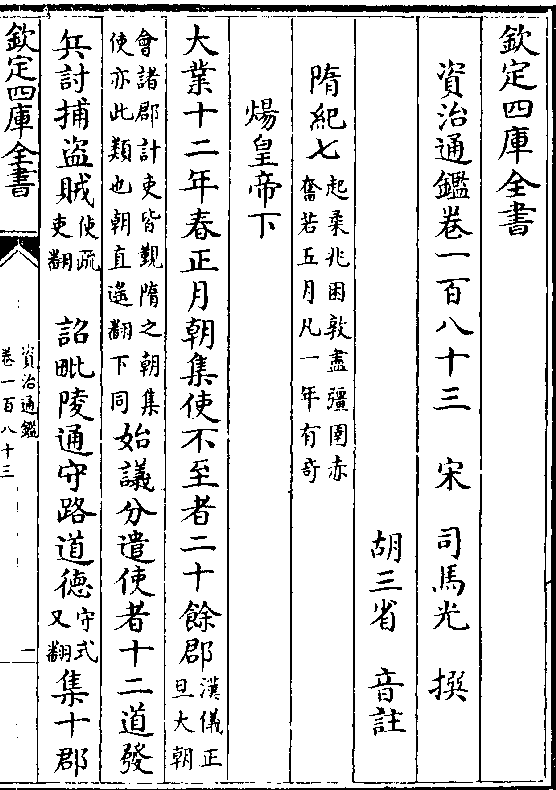 欽定四庫全書
資治通鑑卷一百八十三 宋 司馬光 撰
胡三省 音註
隋紀七起柔兆困敦盡彊圉赤奮若五月凡一年有奇
煬皇帝下
大業十二年春正月朝集使不至者二十餘郡漢儀正旦大朝
會諸郡計吏皆覲隋之朝集使亦此類也朝直遥翻下同始議分遣使者十二道發
兵討捕盜賊使疏吏翻 詔毗陵通守路道德守式又翻集十郡
欽定四庫全書
資治通鑑
卷一百八十三
一